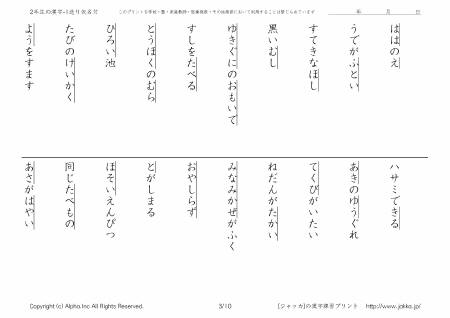 2年生の漢字+1送り仮名付 このプリントを学校・塾・家庭教師・医療機関・その他施設において利用することは禁じられています 年 月 日
ははのえ
うでがふとい
すてきなほし
黒いむし
ゆきぐにのおもいで
すしをたべる
とうほくのむら
ひろい池
たびのけいかく
ようをすます
ハサミできる
あきのゆうぐれ
てくびがいたい
ねだんがたかい
みなみかぜがふく
おやしらず
とがしまる
ほそいえんぴつ
同じたべもの
あさがはやい
Copyright (c) Alpha.Inc All Rights Reserved. 3/10 [ジャッカ]の漢字練習プリント http://www.jakka.jp/